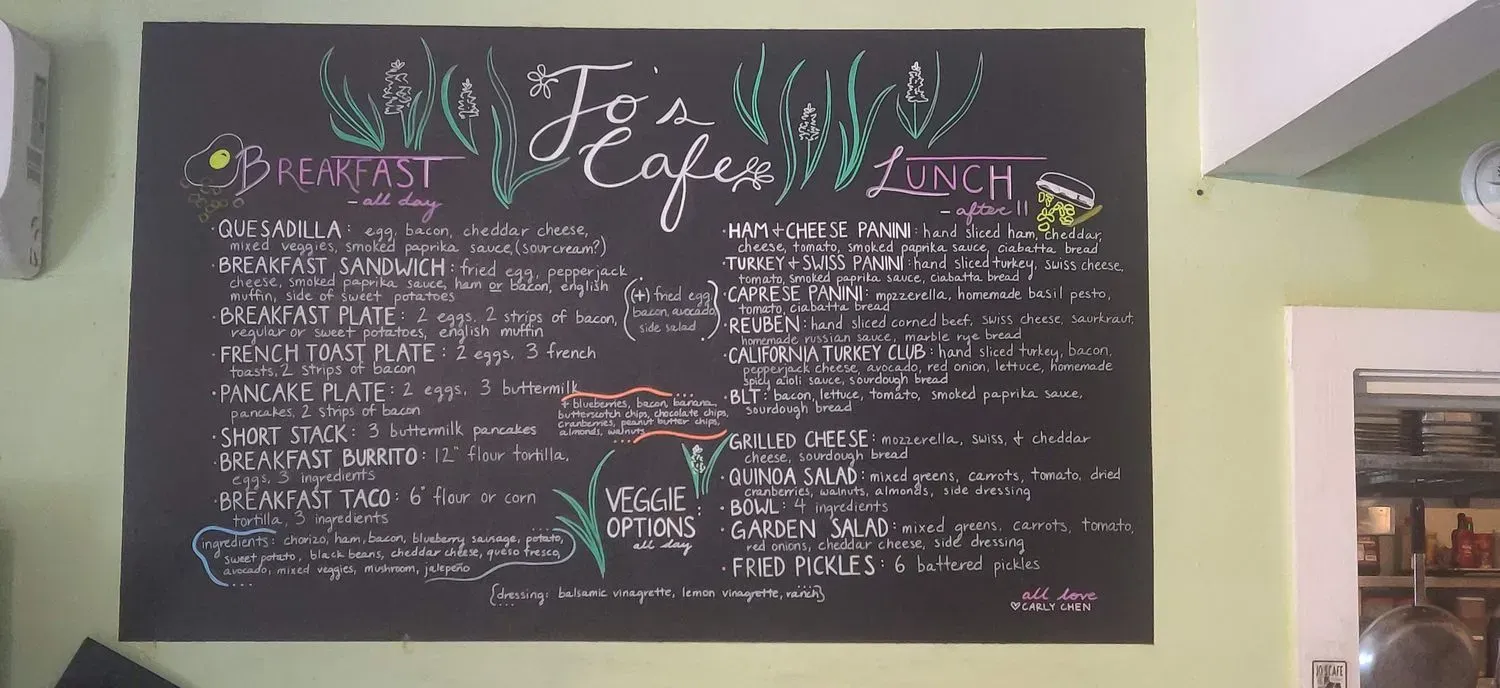 Jo's
Cafe
BREAKFAST
- all day
· QUESADILLA: egg, bacon, cheddar cheese,
mixed veggies, smoked paprika sauce, (sour cream?)
· BREAKFAST SANDWICH: fried egg, pepperjack
cheese, smoked paprika sauce, ham or bacon, english
muffin, side of sweet potatoes
· BREAKFAST PLATE: 2 eggs, 2 strips of bacon,
regular or sweet potatoes, english muffin
· FRENCH TOAST PLATE: 2 eggs, 3 french
toasts, 2 strips of bacon
· PANCAKE PLATE: 2 eggs, 3 buttermilk
pancakes, 2 strips of bacon
· SHORT STACK: 3 buttermilk pancakes
· BREAKFAST BURRITO: 12" flour tortilla,
eggs, 3 ingredients
· BREAKFAST TACO: 6" flour or corn
tortilla, 3 ingredients
ingredients: chorizo, ham, bacon, blueberry sausage, potato,
sweet potato, black beans, cheddar cheese, queso fresco,
avocado, mixed veggies, mushroom, jalepeño
(+) fried egg
bacon, avocado
side salad
+ blueberries, bacon, banana,
butterscotch chips, chocolate chips,
cranberries, peanut butter chips,
almonds, walnuts
VEGGIE
OPTIONS
all day
LUNCH
- after 11
· HAM + CHEESE PANINI: hand sliced ham, cheddar,
cheese, tomato, smoked paprika sauce, ciabatta bread
· TURKEY + SWISS PANINI: hand sliced turkey, swiss cheese,
tomato, smoked paprika sauce, ciabatta bread
· CAPRESE PANINI: mozzerella, homemade basil pesto,
tomato, ciabatta bread
· REUBEN: hand sliced corned beef, swiss cheese, saurkraut,
homemade russian sauce, marble rye bread
· CALIFORNIA TURKEY CLUB: hand sliced turkey, bacon,
pepperjack cheese, avocado, red onion, lettuce, homemade
spicy aioli sauce, sourdough bread
· BLT: bacon, lettuce, tomato, smoked paprika sauce,
sourdough bread
· GRILLED CHEESE: mozzerella, swiss, + cheddar
cheese, sourdough bread
· QUINOA SALAD: mixed greens, carrots, tomato, dried
cranberries, walnuts, almonds, side dressing
· BOWL: 4 ingredients
· GARDEN SALAD: mixed greens, carrots, tomato,
red onions, cheddar cheese, side dressing
· FRIED PICKLES: 6 battered pickles
{dressing: balsamic vinagrette, lemon vinagrette, ranch}
all love
♡ CARLY CHEN
JO'S CAFE